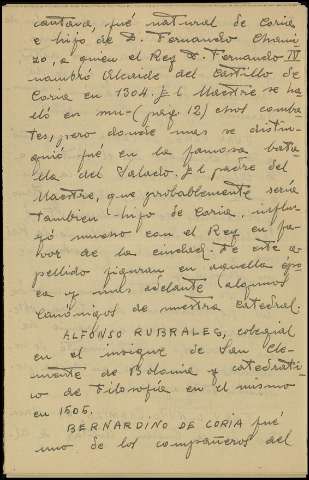 cántara, fué natural de Coria
e hijo de D. Fernando Chami-
zo, a quien el Rey D. Fernando IV
nombró Alcaide del Castillo de
Coria en 1304. El Maestre se ha-
lló en mu-(pag. 12) chos comba-
tes, pero donde mas se distin-
guió fué en la famosa bata-
lla del Salado. El padre del
Maestre, que probablemente sería
tambien hijo de Coria, influ-
yó mucho con el Rey en fa-
vor de la ciudad. De este a-
pellido figuran en aquella épo-
ca y mas adelante algunos
Canónigos de nuestra Catedral.
ALFONSO RUBRALES, colegial
en el insigne de San Cle-
mente de Bolonia y catedráti-
co de Filosofía en el mismo
en 1505.
BERNARDINO DE CORIA fué
uno de los compañeros del